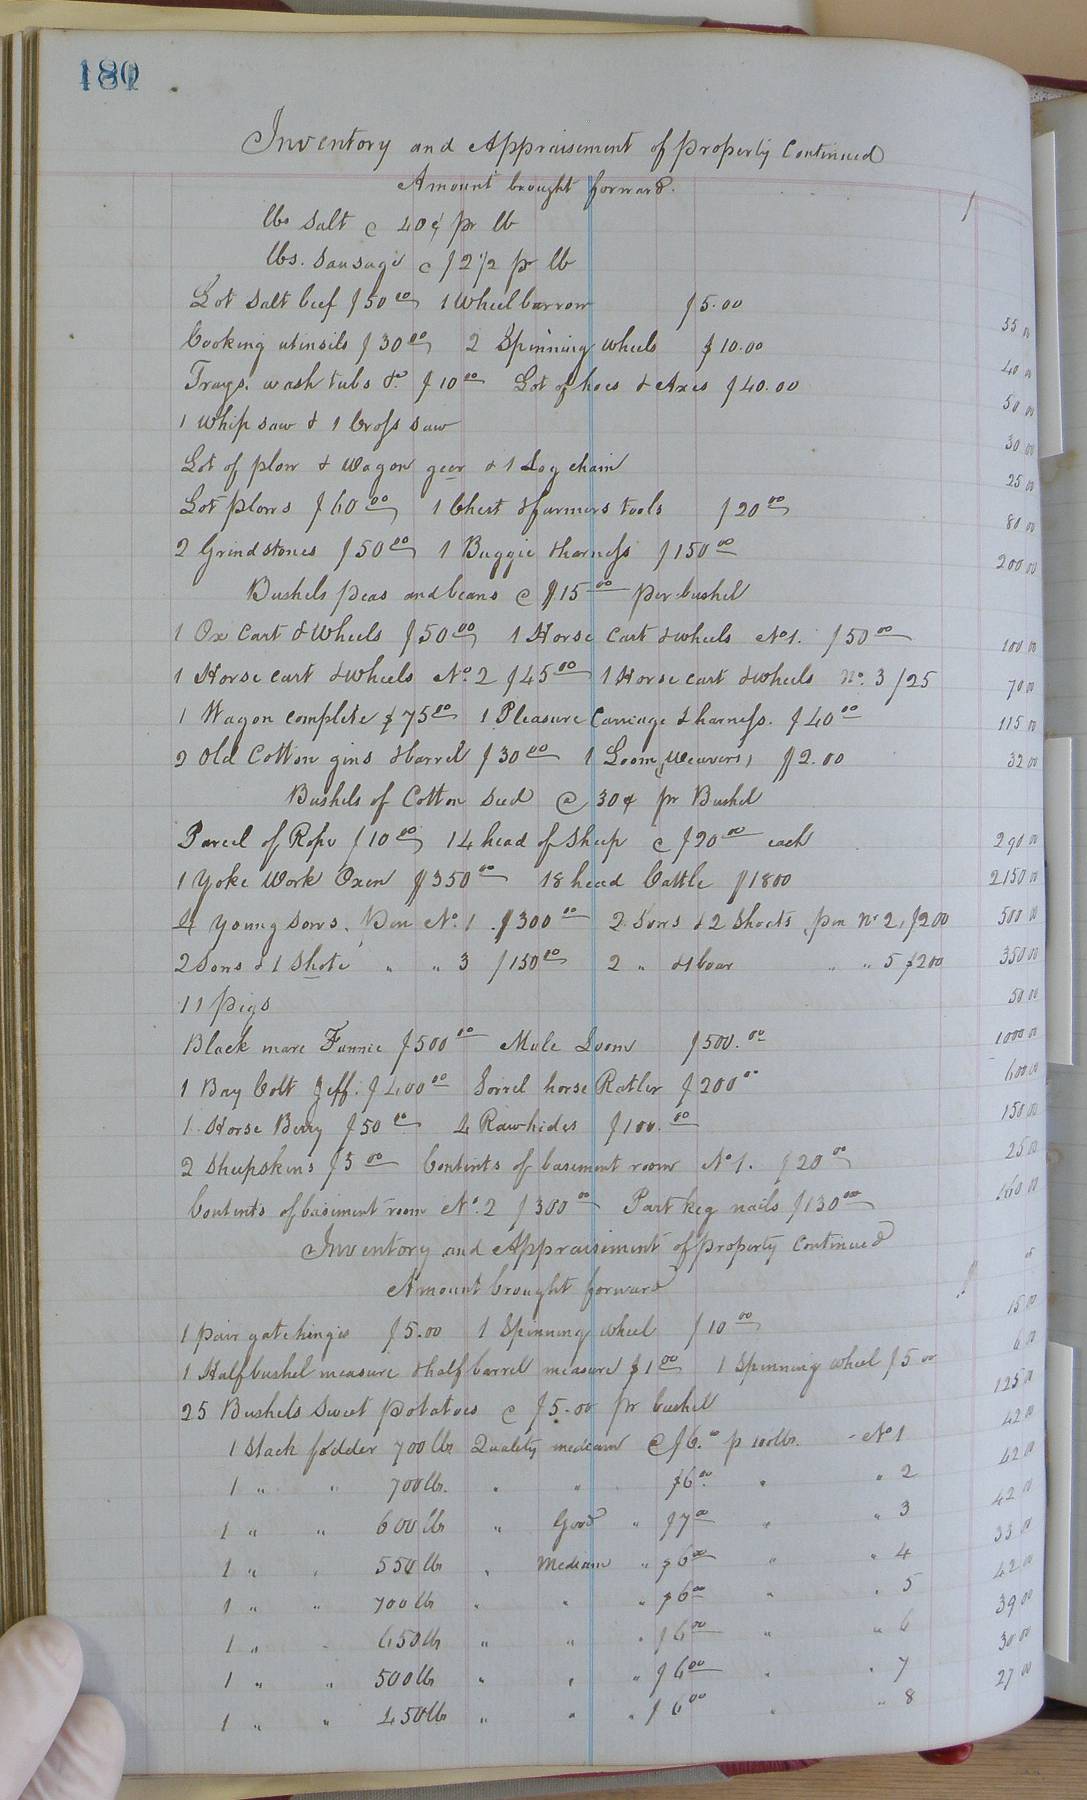 180
Inventory and Appraisement of property Continued
Amount brought forward.
lbs Salt @ 40¢ pr lb
lbs. Sausage @ $2 1/2 pr lb
Lot Salt beef $50 00 1 Wheelbarrow $5.00 55 00
Cooking utinsils $30 00 2 Spinning wheels $10.00 40 00
Trays, wash tubs &c $10 00 Lot of hoes & Axes $40.00 50 00
1 Whip Saw & 1 Cross Saw 30 00
Lot of plow & Wagon gear & 1 Log chain 25 00
Lot plows $60 00 1 Chest & farmers tools $20 00 80 00
2 Grindstones $50 00 1 Buggie & harness $150 00 200 00
Bushels peas and beans @ $15 00 per bushel
1 Ox Cart & Wheels $50 00 1 Horse Cart & wheels No 1. $50 00 100 00
1 Horse cart & wheels No. 2 $45 00 1 Horse cart & wheels No. 3 $25 70 00
1 Wagon complete $75 00 1 Pleasure Carriage & harness. $40 00 115 00
2 Old Cotton gins & barrel $30 00 1 Loom, Weavers, $2.00 32 00
Bushels of Cotton Seed @ 30¢ pr Bushel
Parcel of Rope $10 00 14 head of Sheep @ $20 00 each 290 00
1 Yoke Work Oxen $350 00 18 head Cattle $1800 2150 00
4 Young Sows. Pen No. 1 $300 00 2 Sows & 2 Shoats, pen No 2, $200 500 00
2 Sows & 1 Shote " " 3 $150 00 2 " & 1 boar " " 5 $200 350 00
11 pigs 50 00
Black mare Fannie $500 00 Mule Loom $500. 00 1000 00
1 Bay Colt Jeff. $400 00 Sorrel horse Ratler $200 00 600 00
1 Horse Berry $50 00 4 Rawhides $100. 00 150 00
2 Sheepskins $5 00 Contents of basement room No 1. $20 00 25 00
Contents of basiment room No. 2 $300 00 Part keg nails $130 00
Inventory and Appraisement of property Continued
Amount brought forward
1 pair gate hinges $5.00 1 Spinning wheel $10 00 15 00
1 Half bushel measure & half barrel measure $1 00 1 Spinning wheel $5 00 6 00
25 Bushels Sweet potatoes @ $5.00 pr bushel 125 00
1 Stack fodder 700 lbs Quality medium @ $6. 00 p 100 lbs. - No 1 42 00
1 " " 700 lbs. " " $6 00 " " 2 42 00
1 " " 600 lbs " Good " $7 00 " " 3 42 00
1 " " 550 lbs " Medium " $6 00 " " 4 33 00
1 " " 700 lbs " " " $6 00 " " 5 42 00
1 " " 650 lb " " " $6 00 " " 6 39 00
1 " " 500 lbs " " " $6 00 " " 7 30 00
1 " " 450 lbs " " " $6 00 " " 8 27 00